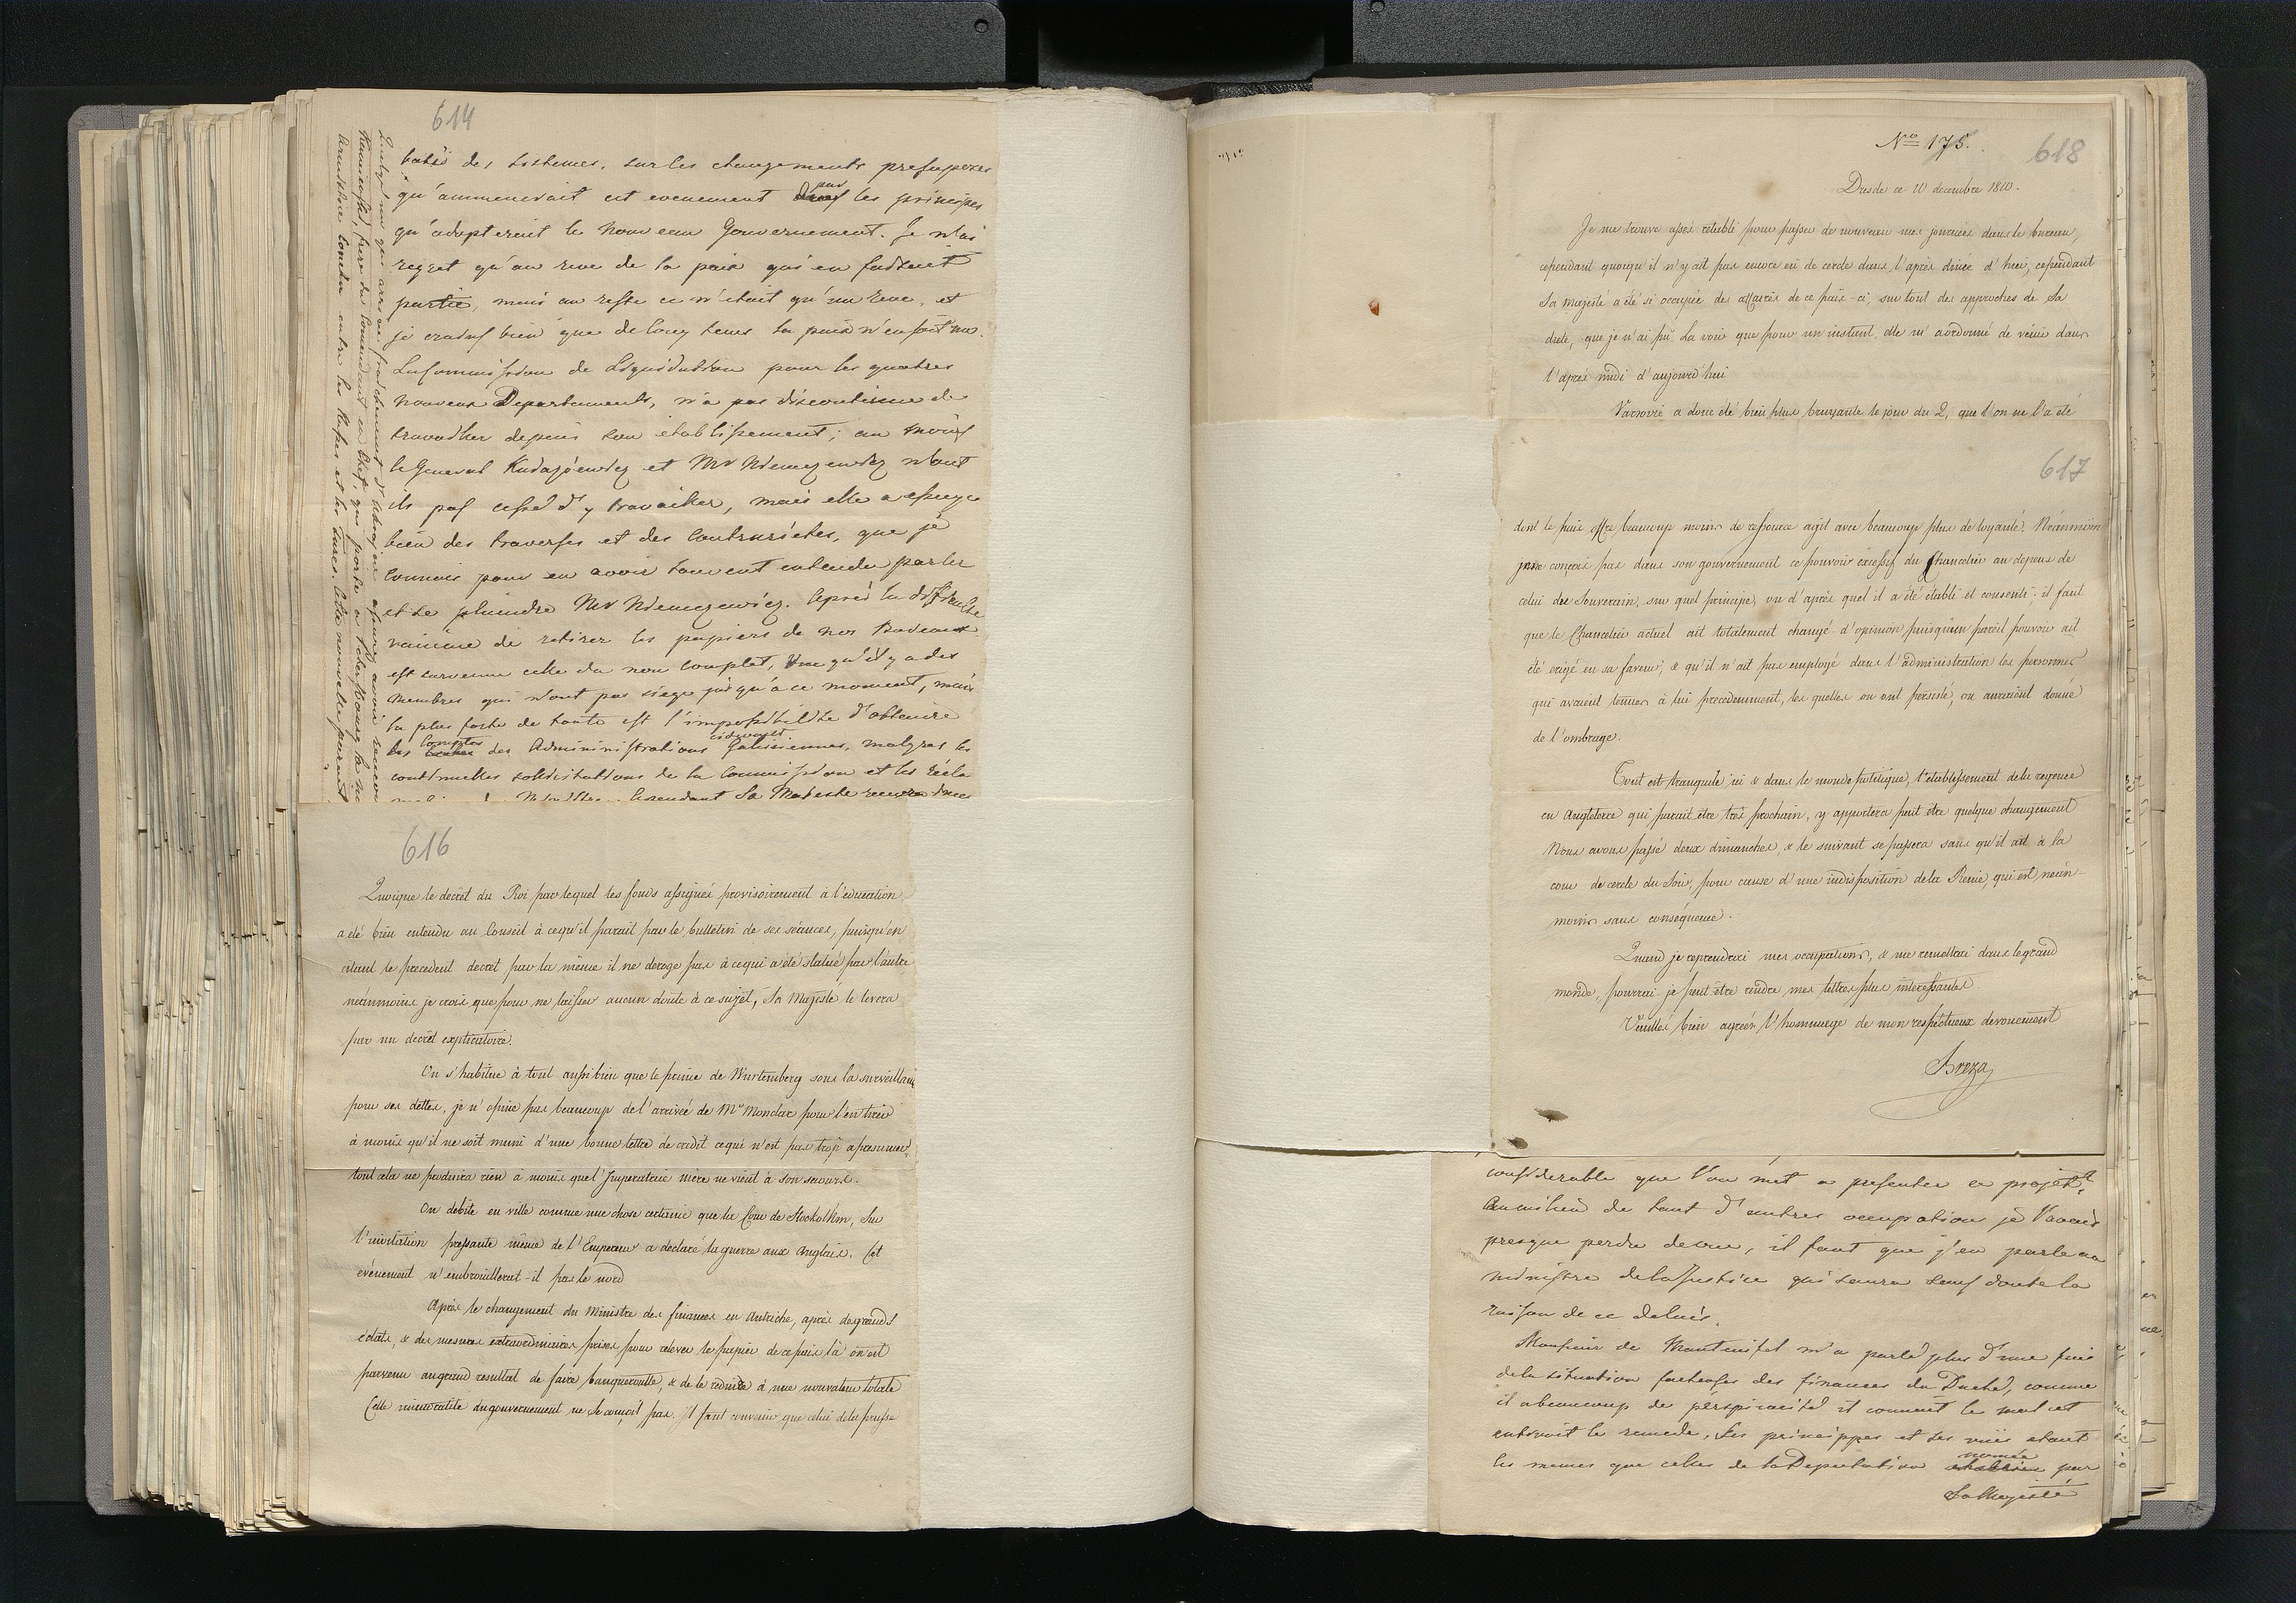 614
batie des sistemes, sur les changements presuposés
qu'ammenerait cet evenement par les principes
qu'adopterait le nouveau Gouvernement. Je n'ai
regret qu'au reve de la paix qui en faisait
partie, mais au reste ce n'etait qu'un reve, et
je crains bien que de long tems la paix n'en soit un.
La Commission de Liquidation pour les quatres
nouveaux Departements, n'a pas discontinue de
travailler depuis son etablissement; au moins
le General et Mr Niemcewicz n'ont
ils pas cessé d'y travailler, mais elle a essuye
bien des traverses et des contrarietes, que je
connois pour en avoir souvent entendu parler
et se plaindre Mr Niemcewicz. Après la difficulte
de retirer les papiers de nos Bureaux
est survenue celle du non complet, vue qu'il y a des
membres qui n'ont pas siege jusqu'à ce moment, mais
la plus forte de toute est l'impossibilite d'obtenir
les comptes des Administrations cidevant Galiciennes, malgres les
continuelles sollicitations de la Commission et les récla
cependant Sa Majesté
616
Quoique le decret du Roi par lequel les fonds assignés provisoirement à l'education
a été bien entendu au Conseil à cequ'il parait par le bulletin de ses séances, puisqu'en
citant le precedent decret par la même il ne deroge pas à cequi a été statué par l'autre
néanmoins je crois que pour ne laisser aucun doute à ce sujet, Sa Majesté le levera
par un decret explicatoire.
On s'habitue à tout aussi bien que le prince de Wurtemberg sous la surveillance
pour ses dettes, je n'opine pas beaucoup de l'arrivée de Mr Monclar pour l'en tirer
à moins qu'il ne soit muni d'une bonne lettre de credit cequi n'est pas trop a presumer,
tout cela ne produira rien à moins que l'Imperatrice mère ne vient à son secours.
On débite en ville comme une chose certaine que la Cour de Stockolhm, sur
l'invitation pressante même de l'Empereur a declaré la guerre aux Anglais. Cet
evenement n'embrouillerat-il pas le nord
Après le changement du Ministre des finances en Autriche, après de grands
éclats, & des mesures extraordinaires prises pour relever le papier de ce païs là on est
parvenu au grand resultat de faire banqueroutte, & de le reduire à une nonvaleur totale
Cette du gouvernement ne se conçoit pas. Il faut convenir que celui de la prusse
No 175.
618
Dresde ce 10 decembre 1810.
Je me trouve assés rétabli pour passer de nouveau mes journées dans le bureau,
cependant quoiqu'il n'y ait pas encore eü de cercle dans l'après dinée d'hier, cependant
Sa majesté a été si occupée des affaires de ce païs-ci, sur tout des approches de la
diete, que je n'ai pü La voir que pour un instant, elle m'a ordonné de venir dans
l'après midi d'aujourd'hui
Varsovie a donc été bien plus bruyante le jour du 2, que l'on ne l'a été
617
dont le païs offre beaucoup moins de ressource agit avec beaucoup plus de loyauté. Néanmoins
je ne conçois pas dans son gouvernement ce pouvoir excessif du Chancelier au depens de
celui des Souverains, sur quel principe, ou d'après quel il a été établi et consenti; il faut
que le Chancelier actuel ait totalement changé d'opinion puisqu'un pareil pouvoir ait
été erigé en sa faveur; & qu'il n'ait pas employé dans l'administration les personnes
qui avaient tenues à lui precedemment, les quelles ou ont persisté, ou auraient donné
de l'ombrage.
Tout est tranquile ici & dans le monde politique, l'etablissement de la regence
en Angleterre qui parait être très prochain, y apportera peut être quelque changement
Nous avons passé deux dimanches, & le suivant se passera sans qu'il ait à la
cour de cercle du Soir, pour cause d'une indisposition de la Reine, qui est néan-
moins sans conséquence.
Quand je reprendrai mes occupations, & me remettrai dans le grand
monde, pourrai-je peut être rendre mes lettres plus interessantes.
Veuillés bien agréer l'hommage de mon respectueux devouement
Breza
considerable que l'on met a presenter ce projet.
Au milieu de tant d'autres occupation je l'avais
presque perdu de vue, il faut que j'en parle au
ministre de la Justice qui saura sans doute la
raison de ce delais.
Monsieur de Manteufel m'a parlé plus d'une fois
de la situation facheuse des finances du Duché, comme
il a beaucoup de perspicacité il connait le mal et
entrevoit le remede. Ses principes et ses vuës etant
les memes que celles de la Deputation nomée par
Sa Majesté